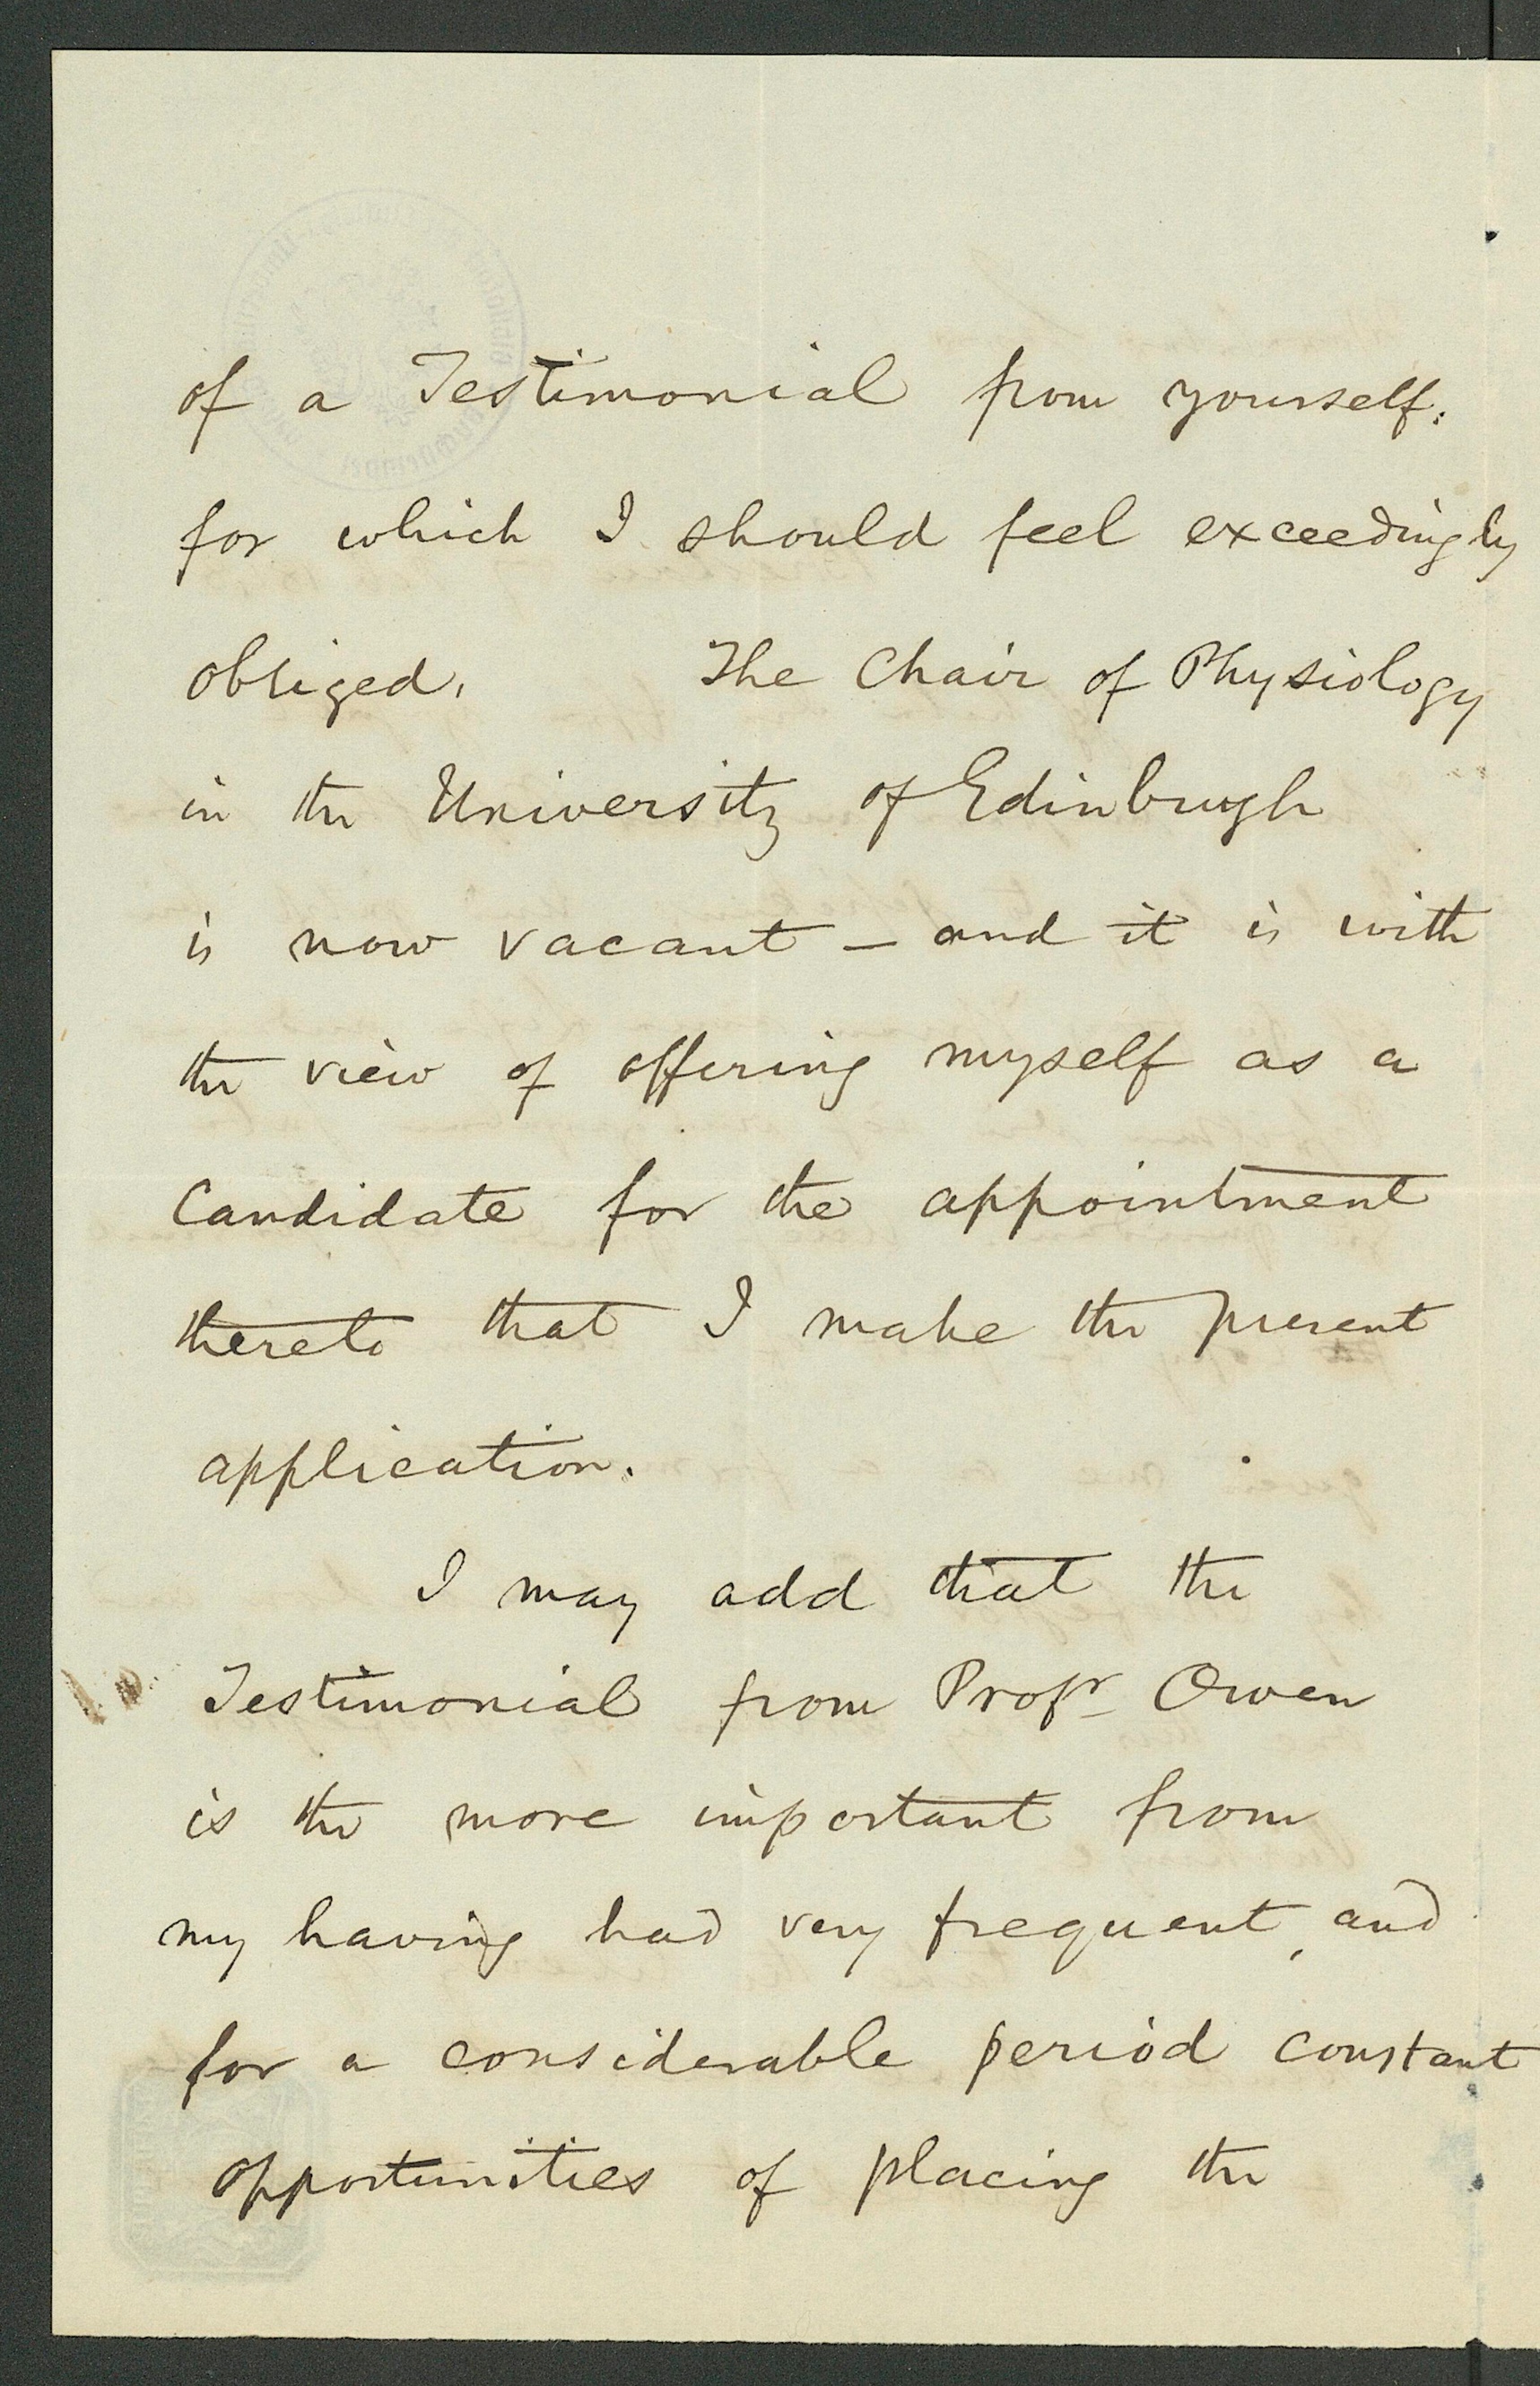 of a Testimonial from yourself:
for which I should feel exceedingly
obliged. The Chair of Physiology
in the University of Edinburgh
is now vacant – and it is with
the view of offering myself as a
Candidate for the appointment
thereto that I make the present
application.
I may add that the
Testimonial from Profr Owen
is the more important from
my having had very frequent, and
for a considerable period constant
opportunities of placing the